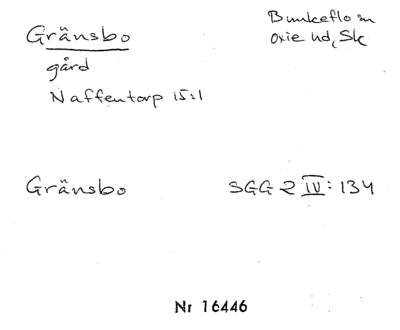 Gränsbo
Bunkeflo sn
Oxie hd, Sk
gård
Naffentorp 15:1
Gränsbo
SGG 2 IV: 134
Nr 16446